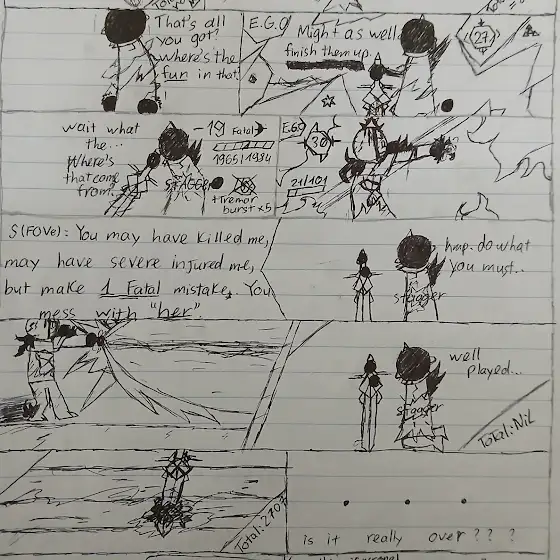 That's all
you got?
where's the
fun in that
E.G.O
Might as well
finish them up.
27
wait what
the...
Where's
that come
from?
-19 Fatal
1965/1984
STAGGER
+Tremor
burst x5
E.G.O
30
21/101
S(FOVe): You may have killed me,
may have severe injured me,
but make 1 Fatal mistake, You
mess with "her"
hmp. do what
you must..
stagger
well
played...
stagger
Total: Nil
Total: 270?
. . .
is it really over???